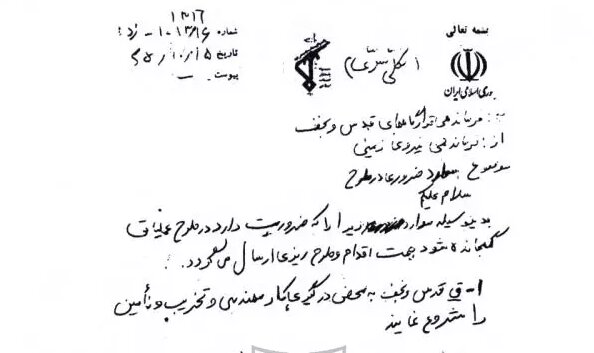 ۱۳۱٦
بسمه تعالی
شماره ۱۰-۱۳/۱٦
تاریخ ٦۵/۱۰/۵
پیوست
جمهوری اسلامی ایران
به: فرماندهی قرارگاههای قدس و نجف
از: فرماندهی نیروی زمینی
موضوع: موارد ضروری در طرح
سلام علیکم
بدینوسیله موارد زیر را که ضروریت دارد در طرح عملیات
گنجانده شود جهت اقدام و طرح ریزی ارسال می گردد.
۱- ق قدس و نجف به محض درگیری کار مهندسی و تخریب و تأمین
را شروع نمایند